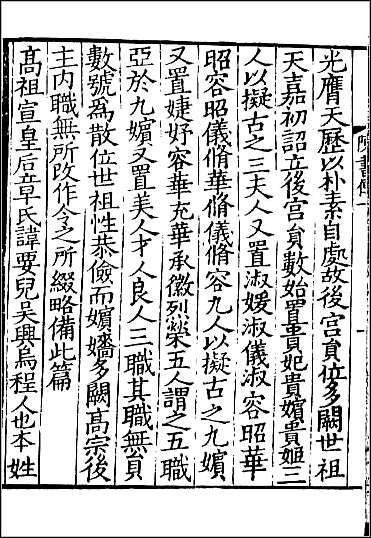 光膺天歷以朴素自處故後宮貟位多闕世祖
天嘉初詔立後宮貟數始置貴妃貴嬪貴姬三
人以擬古之三夫人又置淑媛淑儀淑容昭華
昭容昭儀脩華脩儀脩容九人以擬古之九嬪
又置婕妤容華充華承徽列榮五人謂之五職
亞於九嬪又置美人才人良人三職其職無貟
數號爲散位世祖性恭儉而嬪嬙多闕髙宗後
主內職無所改作今之所綴略備此篇
髙祖宣皇后章氏諱要兒吳興烏程人也本姓